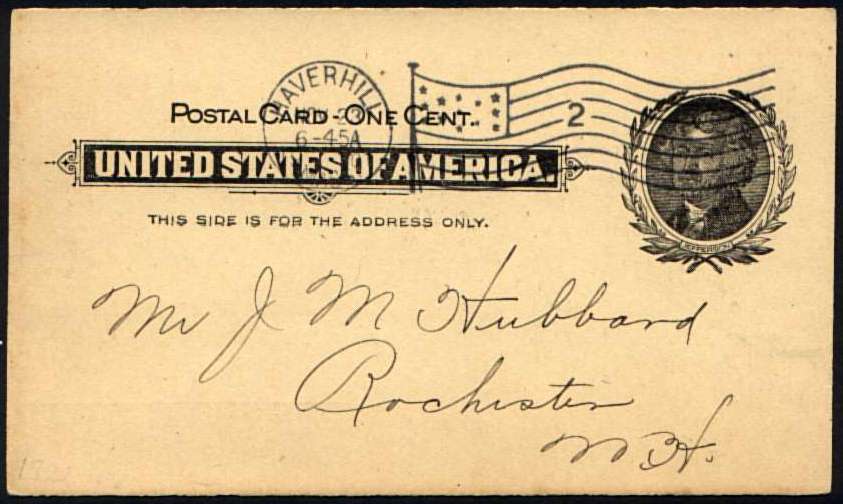 HAVERHILL
NOV 23
6-45A
2
POSTAL CARD - ONE CENT.
UNITED STATES OF AMERICA.
THIS SIDE IS FOR THE ADDRESS ONLY.
JEFFERSON
Mr J M Hubbard
Rochester
N H.